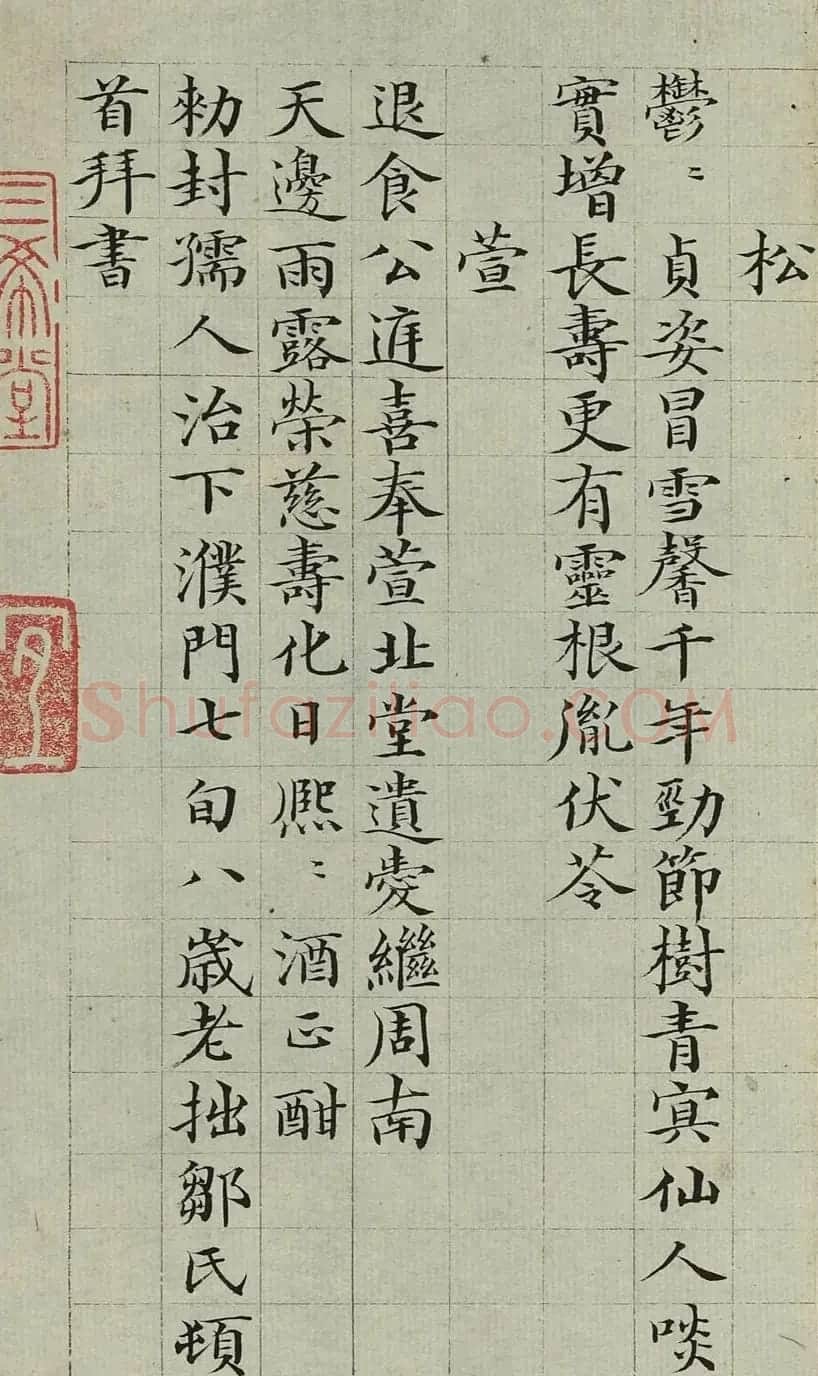 松
鬱〻貞姿冒雪馨千年勁節樹青寘仙人啖
實增長壽更有靈根胤伏苓
萱
退食公庭喜奉萱北堂遺愛繼周南
天邊雨露榮慈壽化日熈〻酒正酣
勑封孺人治下濮門七旬八歲老拙鄒氏頓
首拜書
三希堂
宜
Shufaziliao.COM